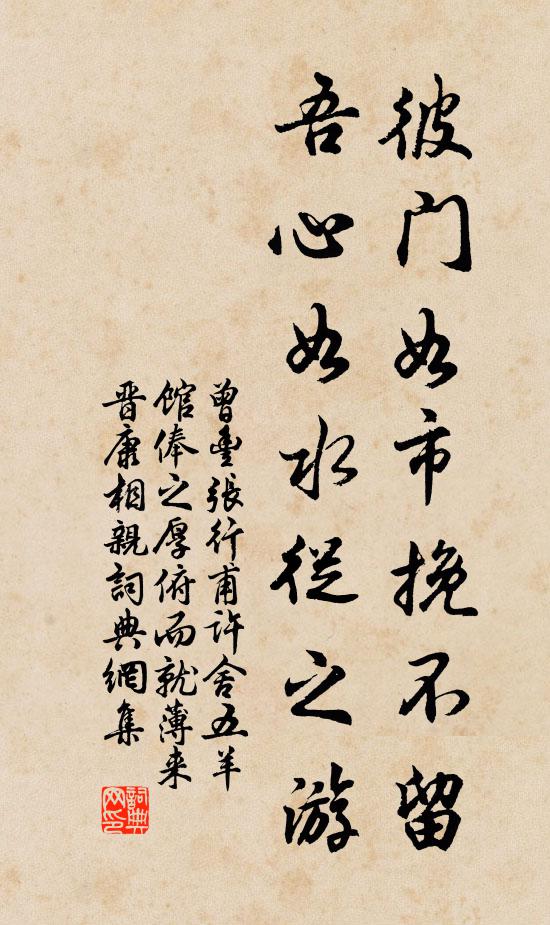 彼門如市挽不留
吾心如水從之游
曾豐張行甫許舍五羊
館俸之厚俯而就薄来
晋康相親詞典網集
詞典
网印